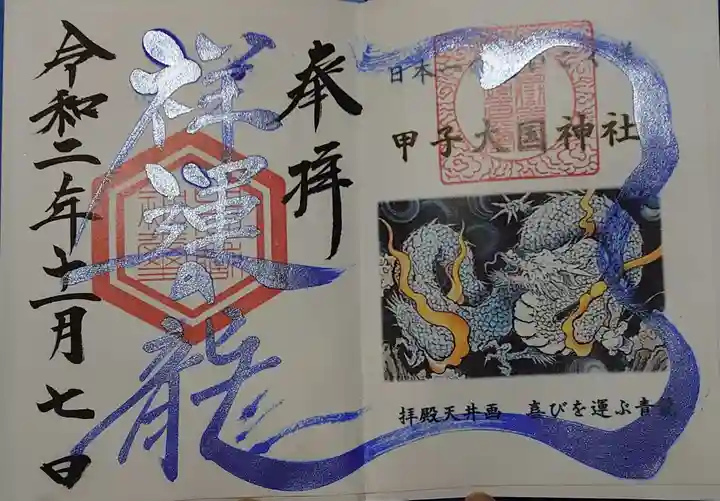 日本
甲子大国神社
拝殿天井画 喜びを運ぶ青龍
奉拝
祥運の龍
令和二年十一月七日